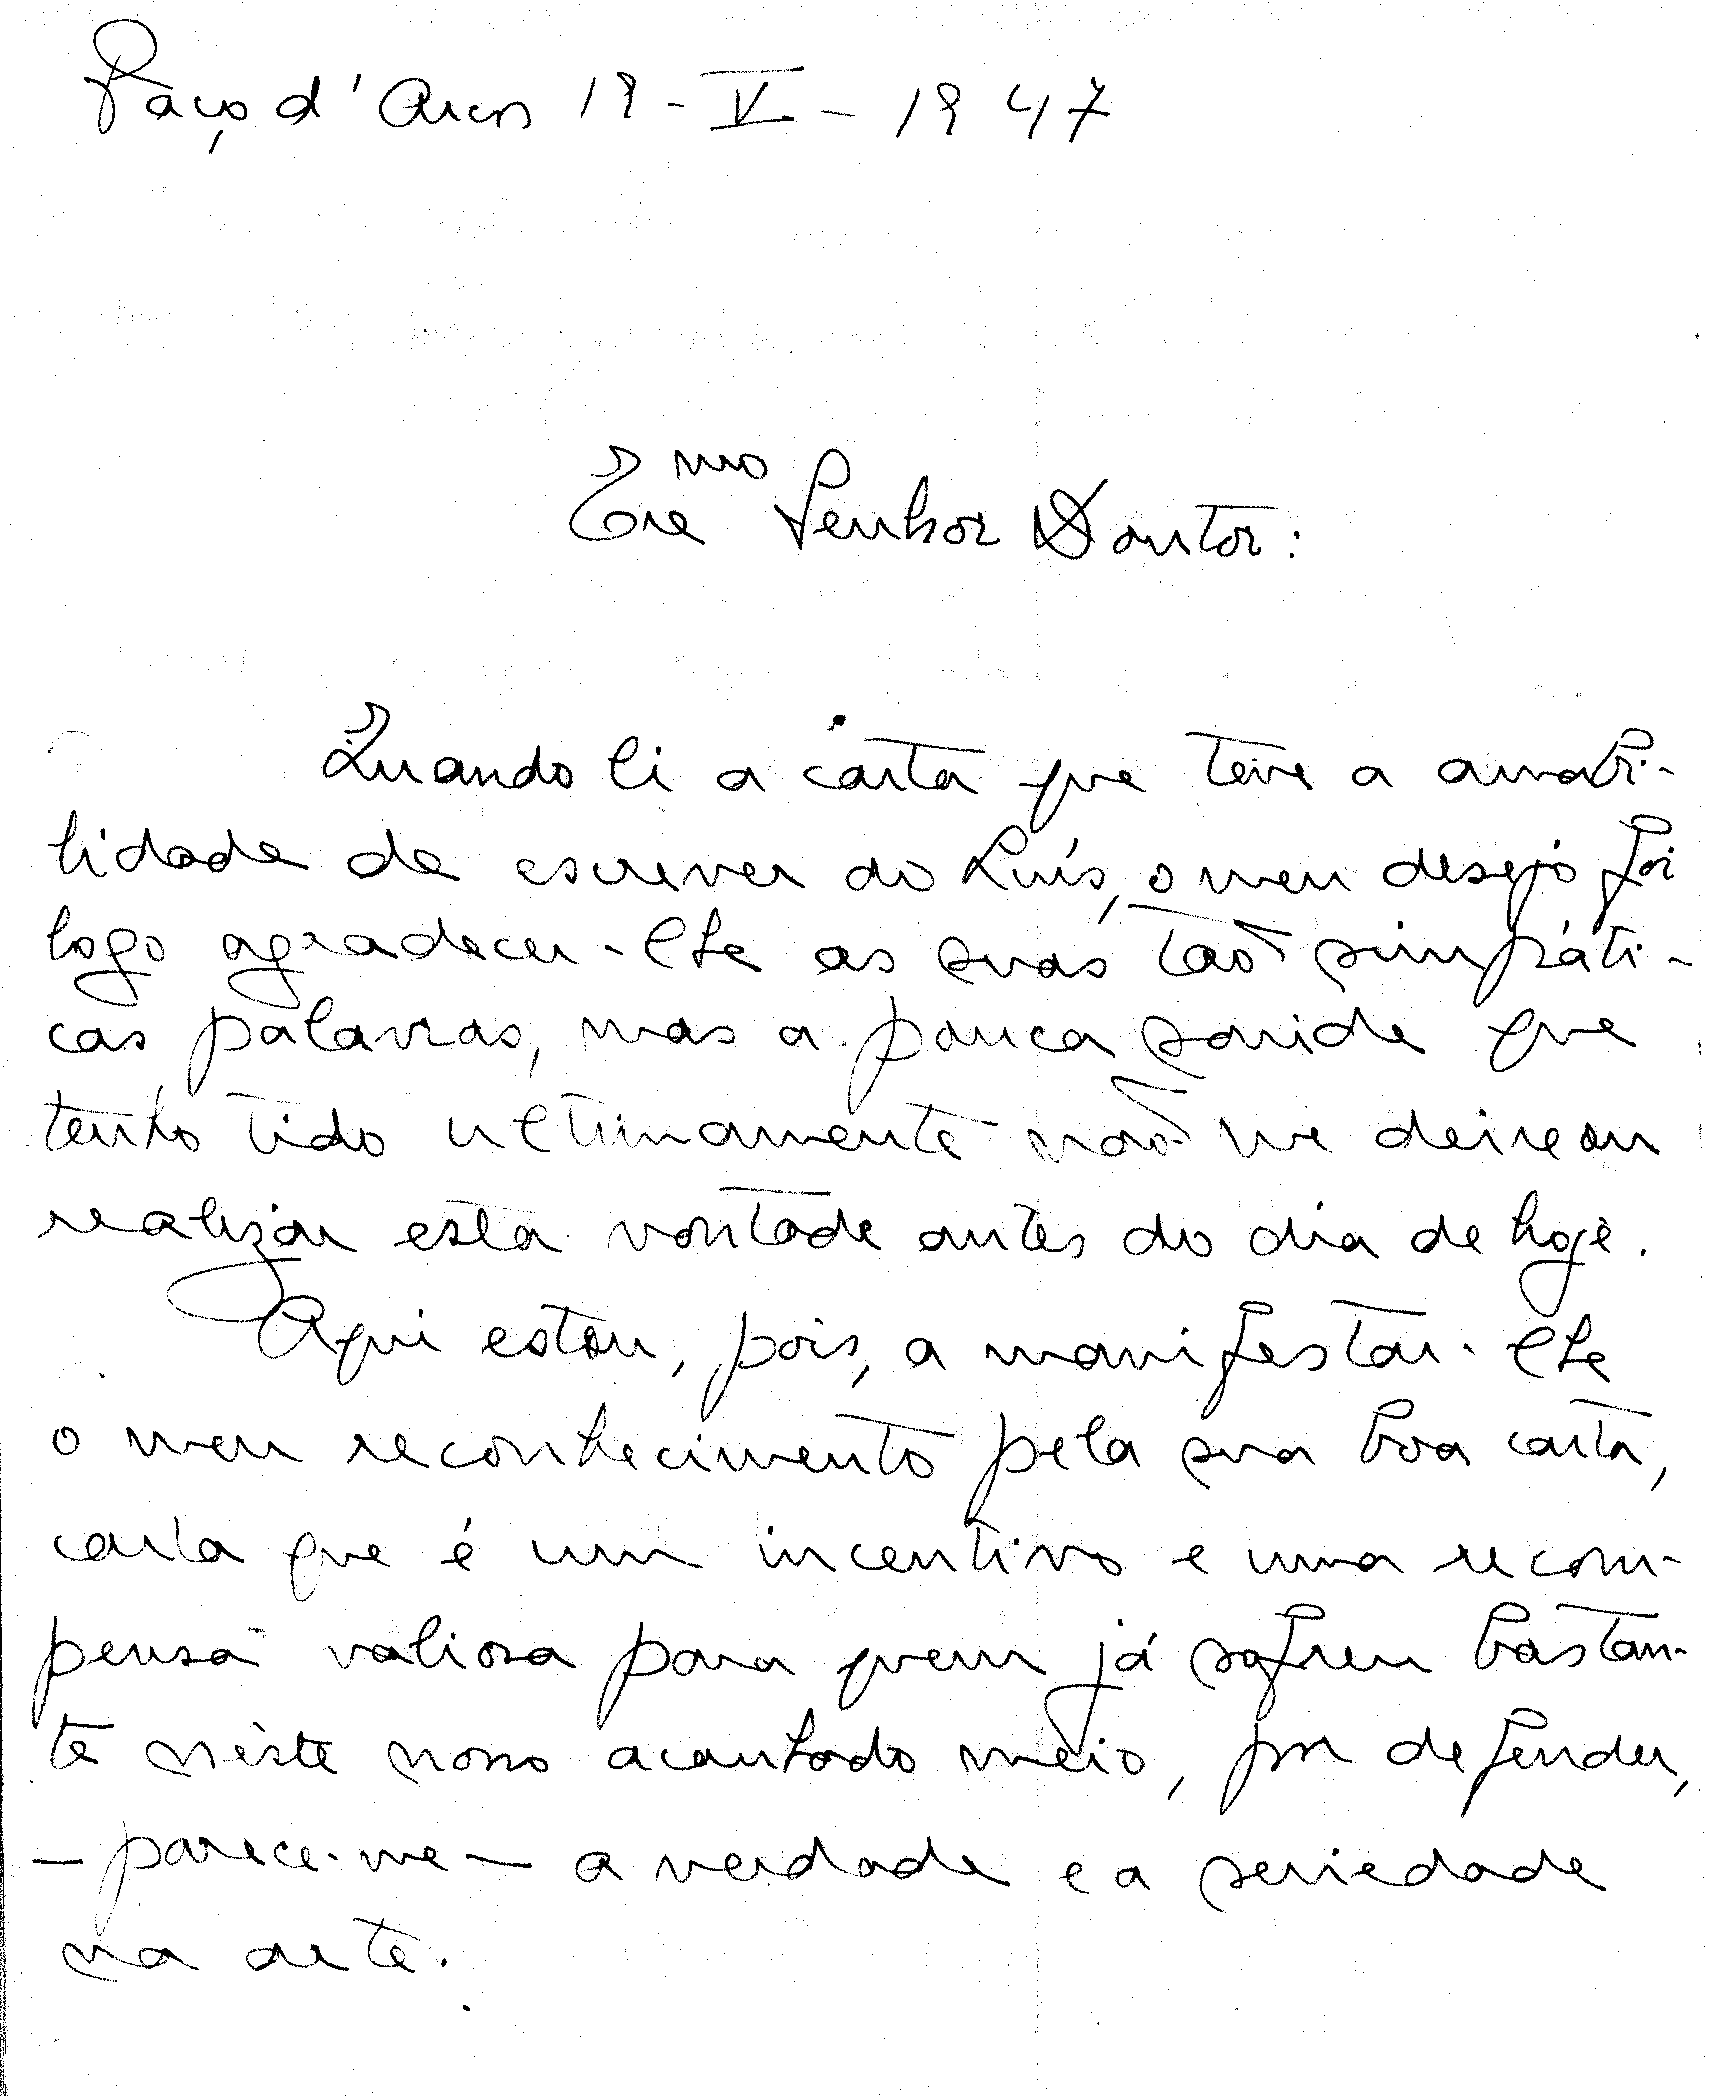 Paço d'Arcos 19-V-1947
Exmo Senhor Doutor:
Quando li a carta que teve a amabi-
lidade de escrever ao Luís, o meu desejo foi
logo agradecer-lhe as suas tão simpáti-
cas palavras, mas a pouca saúde que
tenho tido ultimamente não me deixou
realizar esta vontade antes do dia de hoje.
Aqui estou, pois, a manifestar-lhe
o meu reconhecimento pela sua boa carta,
carta que é um incentivo e uma recom-
pensa valiosa para quem já sofreu bastan-
te nêste nosso acanhado meio, por defender,
— parece-me — a verdade e a seriedade
na arte.